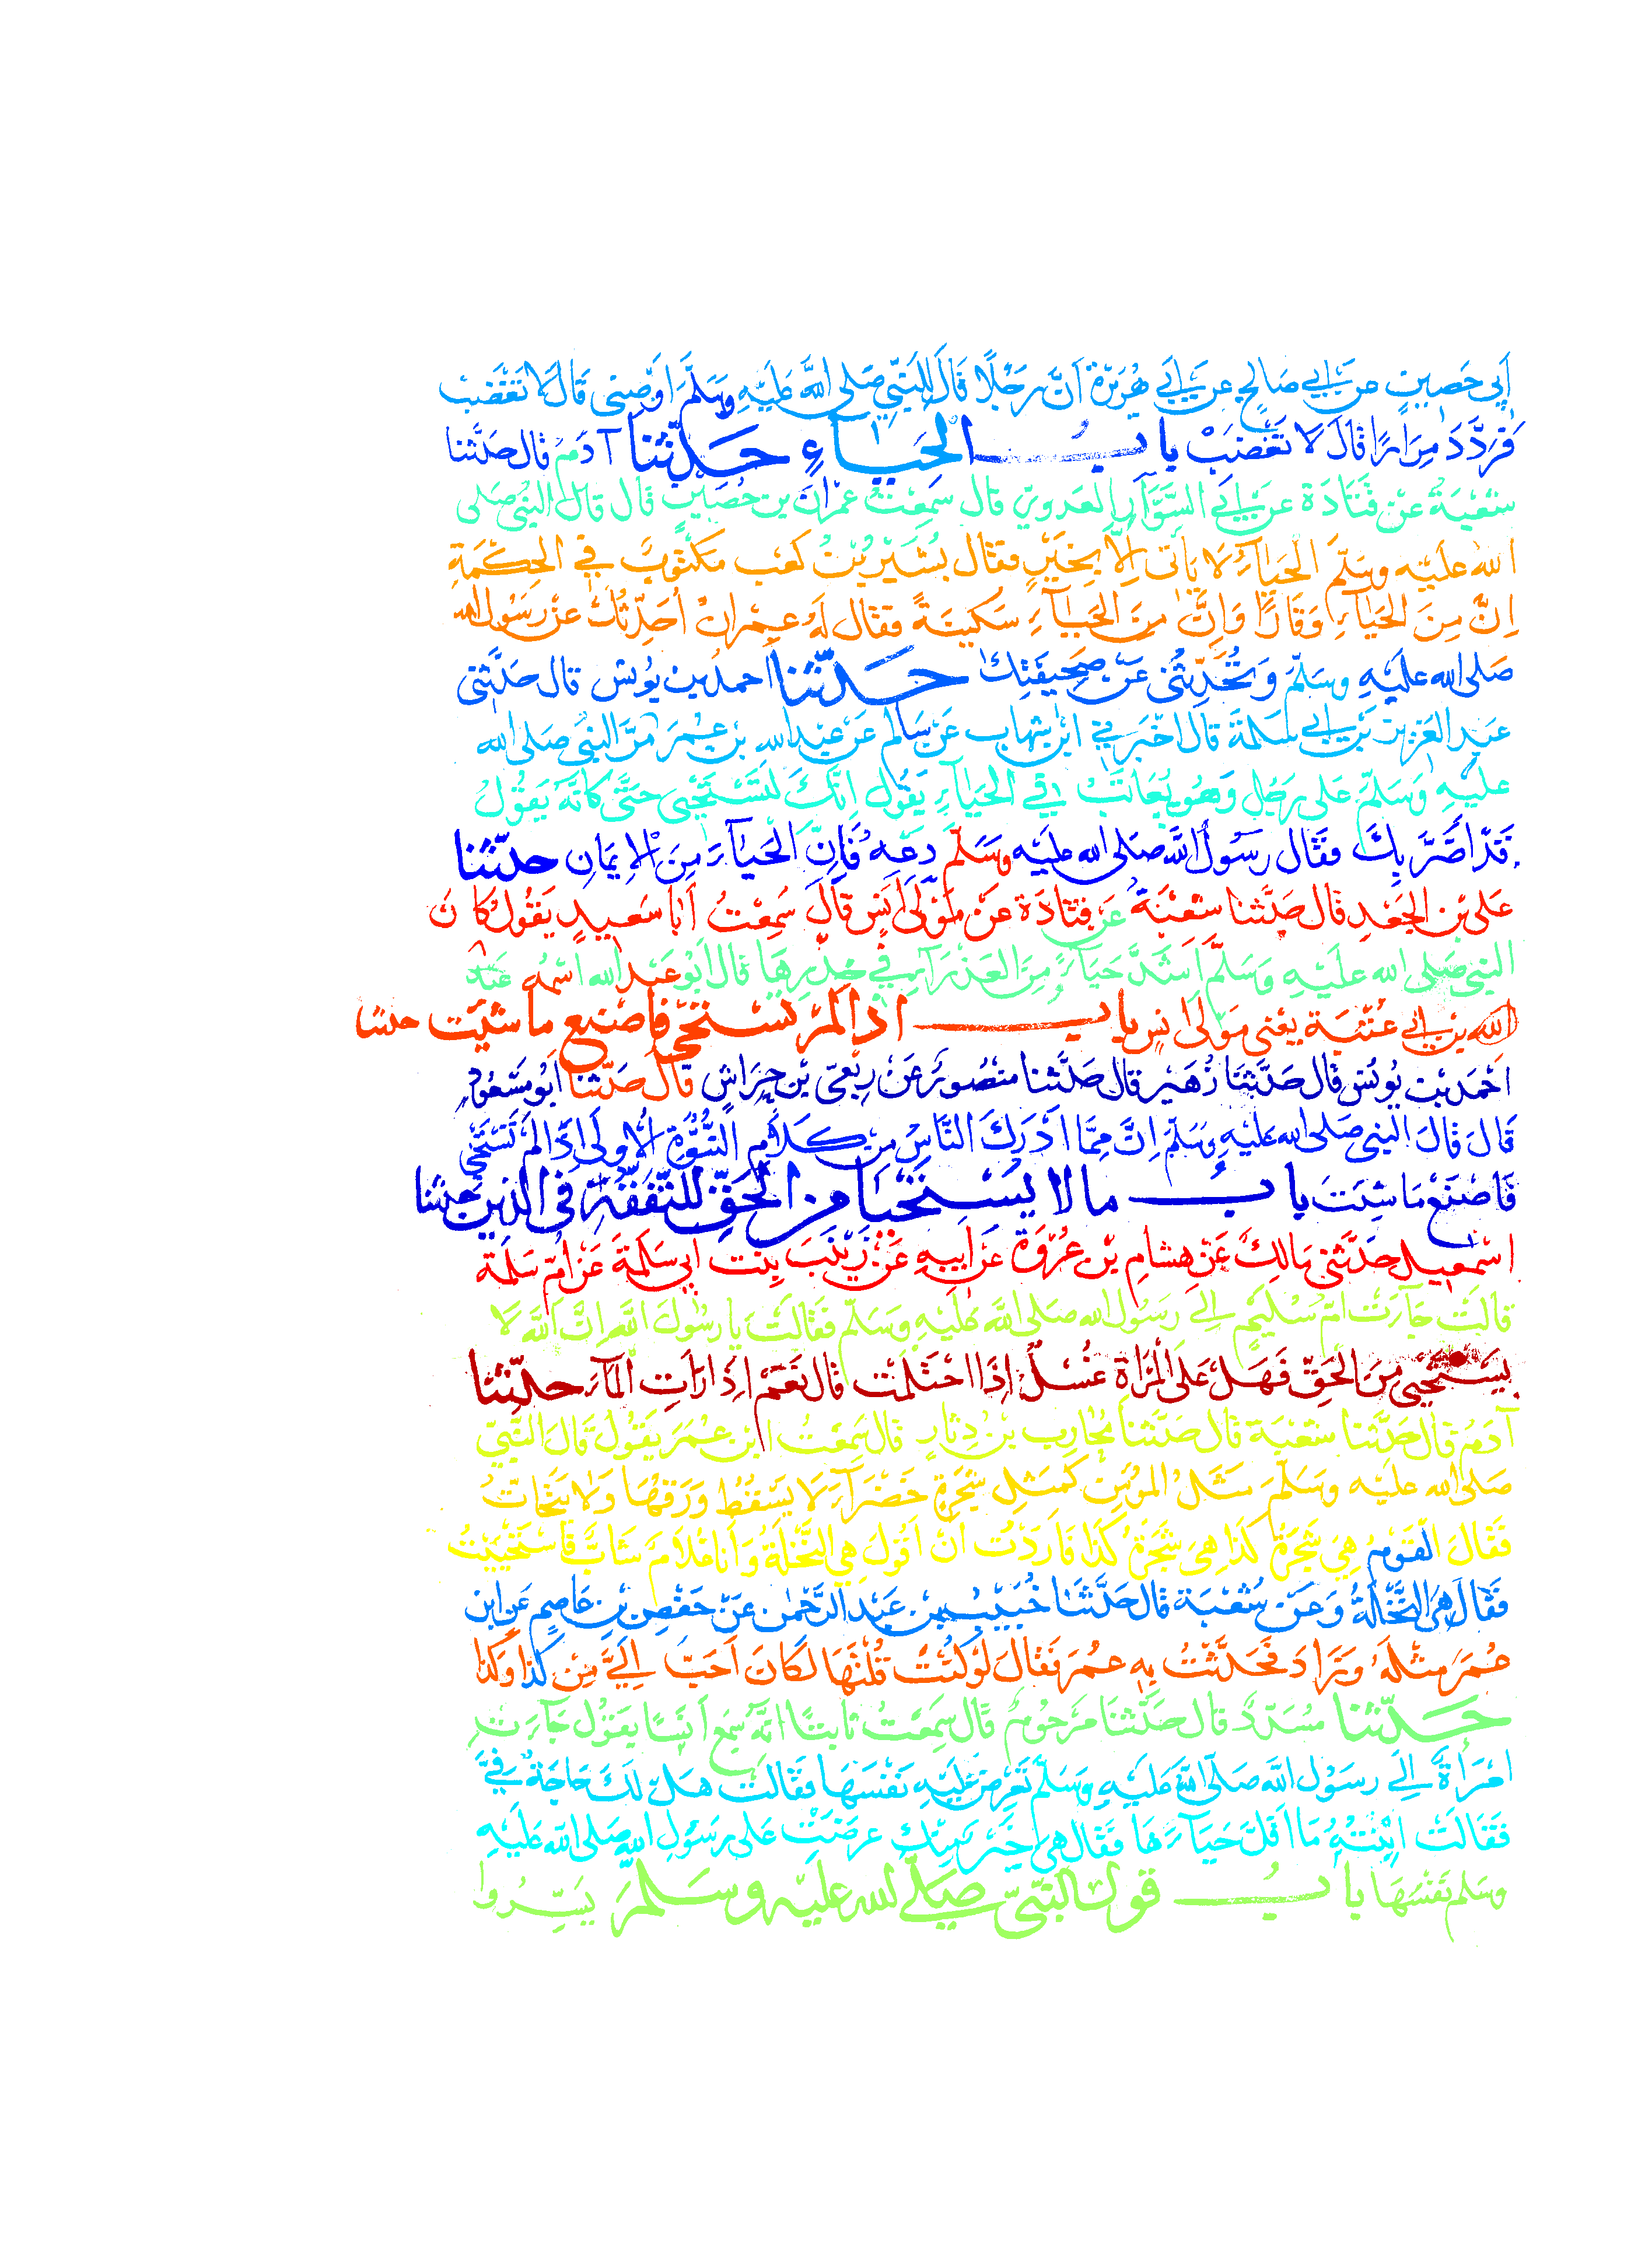 أَبِي حَصِينٍ عن أَبِي صَالِحٍ عن أَبِي هُرَيْرَةَ أَنَّ رَجُلًا قَالَ لِلنَّبِيِّ صَلى اللَّه عَلَيْهِ وَسَلَّمَ اَوْصِنِى قَالَ لَا تَغْضَبْ
فَرَدَّدَ مِرَارًا قَالَ لَا تَغْضَبْ بابُ الْحَيَاءِ حَدَّثنا آدَمُ قال حَدَّثنا
شُعْبَةُ عَنْ قَتَادَةَ عن أَبِي السَّوَّارِ العَدَوِيِّ قال سَمِعْتُ عِمْرَانَ بن حُصَيْنٍ قال قال النبيُّ صَلى
الله عَلَيْه وسَلَّمَ الحَيَاءُ لَا يَأْتِى إِلَّا بِخَيْرٍ فقال بُشَيْرُ بْنُ كَعْبٍ مَكْتُوبٌ فِي الحِكْمَةِ
اِنَّ مِنَ الحَيَاءِ وَقَارًا وَاِنَّ مِنَ الحَيَاءِ سَكِينَةً فقال لَهُ عِمْرانُ اُحَدِّثُكَ عَنْ رَسُولِ الله
صَلى الله عَلَيْهِ وسَلَّمَ وَتُحَدِّثُنِى عَنْ صَحِيفَتِكَ حَدَّثنا احمدُ بن يُونُسَ قال حَدَّثَنِى
عَبْدُ العَزِيزِ بْنُ أَبِي سَلَمَةَ قال اَخْبَرَنِي ابْنُ شِهَابٍ عَنْ سَالِمٍ عَنْ عَبْدِ اللهِ بنِ عُمَرَ مَرَّ النبيُّ صَلى الله
عَلَيْهِ وَسَلَّمَ عَلى رَجُلٍ وَهُوَ يُعَاتَبُ فِي الحَيَاءِ يَقُولُ اِنَّكَ لَتَسْتَحْيِى حَتَّى كَاَنَّهُ يَقُولُ
قَدْ اَضَرَّ بِكَ فَقَال رَسُولُ اللَّهِ صَلى الله عليه وَسَلَّمَ دَعْهُ فَاِنَّ الْحَيَاءَ مِنَ الْإِيمَانِ حدثنا
عَلى بْن الجَعْدِ قال حَدَّثنا شُعْبَةُ عَن قَتَادَةَ عَنْ مَوْلَى اَنَسٍ قَالَ سَمِعْتُ اَبَا سَعِيدٍ يَقُولُ كَانَ
النبى صَلى الله عَلَيْهِ وَسَلَّمَ اَشَدَّ حَيَاءً مِنَ العَذْرَاءِ فِي خِدْرِهَا قال اَبُو عَبْدِ الله اسْمُهُ عَبْدُ
الله بن أَبِي عُتْبَةَ يعنى مَوْلى انس بابُ اذا لَمْ تَسْتَحْيِ فَاصْنَعْ مَا شِئْتَ حدثنا
اَحْمَدُ بْنُ يُونُسَ قال حَدَّثَنَا زُهَيْرٌ قال حَدَّثنا مَنْصُورٌ عَنْ رِبْعِىِّ بْنِ حِرَاشٍ قَالَ حَدَّثنا اَبُو مَسْعُودٍ
قَالَ قَالَ النبى صَلى الله عَلَيْهِ وَسَلَّمَ اِنَّ مِمَّا اَدْرَكَ النَّاسُ مِنْ كَلَامِ النُّبُوَّةِ الْاُولَى اِذَا لَمْ تَسْتَحْيِ
فَاصْنَعْ مَا شِئْتَ بابُ ما لا يُسْتَحْيَا مِنَ الْحَقِّ لِلتَّفَقُّهِ فِى الدِّينِ حدثنا
اسْمٰعِيلُ حَدَّثَنِى مَالِكٌ عَنْ هِشَامِ بْنِ عُرْوَةَ عَنْ اَبِيهِ عَنْ زَيْنَبَ بِنْتِ اَبِى سَلَمَةَ عَنْ اُمِّ سَلَمَةَ
قالَتْ جَاءَتْ اُمُّ سُلَيْمٍ اِلَى رَسُول الله صَلى اللَّه عَلَيْهِ وَسَلَّمَ فَقَالَتْ يَا رَسُولَ اللّه اِنَّ اللَّهَ لَا
يَسْتَحْيِى مِنَ الحَقِّ فَهَلْ عَلَى الْمَرْاَةِ غُسْلٌ اِذَا احْتَلَمَتْ قال نَعَمْ اِذَا رَاَتِ الْمَاءَ حدّثنا
آدَمُ قال حَدَّثَنا شُعْبَةُ قال حَدَّثنا مُحَارِبُ بْنُ دِثَارٍ قال سَمِعْتُ ابْنَ عُمَرَ يَقُولُ قَالَ النَّبِيُّ
صَلى الله عليه وَسَلَّمَ مَثَلُ المُؤْمِنِ كَمَثَلِ شَجَرَةٍ خَضْرَاءَ لَا يَسْقُطُ وَرَقُهَا وَلَا يَتَحَاتُّ
فَقَالَ القَوْمُ هِيَ شَجَرَةُ كَذَا هِىَ شَجَرَةُ كَذَا فَاَرَدْتُ اَنْ اَقُولَ هِيَ النَّخْلَةُ وَاَنَا غُلَامٌ شَابٌّ فَاسْتَحْيَيْتُ
فَقَالَ هِىَ النَّخْلَةُ وَعَنْ شُعْبَةَ قال حَدَّثَنَا خُبَيْبُ بن عَبْدِ الرَّحْمٰنِ عَنْ حَفْصِ بْنِ عَاصِمٍ عَنِ ابن
عُمَرَ مِثْلَهُ وَزَادَ فَحَدَّثْتُ بِهِ عُمَرَ فَقَالَ لَوْ كُنْتَ قُلْتَهَا لَكَانَ اَحَبَّ اِلَيَّ مِنْ كَذَا وَكَذَا
حَدَّثنا مُسَدَّدٌ قال حَدَّثنَا مَرْحُومٌ قَال سَمِعْتُ ثَابتًا اَنَّهُ سَمِعَ اَنَسًا يَقُولُ جَاءَتِ
امْرَاَةٌ اِلَى رسول اللَّه صَلى اللَّه عَلَيْهِ وَسَلَّمَ تَعْرِضُ عَلَيْهِ نَفْسَهَا فَقَالَتْ هَلْ لَكَ حَاجَةٌ فِيَّ
فَقَالَتْ ابْنَتُهُ مَا اَقَلَّ حَيَاءَهَا فَقَال هِىَ خَيْرٌ مِنْكِ عَرَضَتْ عَلى رَسُولِ اللهِ صَلى اللَّه عَلَيْهِ
وسَلم نَفْسَهَا بابُ قول النبىّ صَلّى الله عليه وَسَلَّمَ يَسِّرُوا